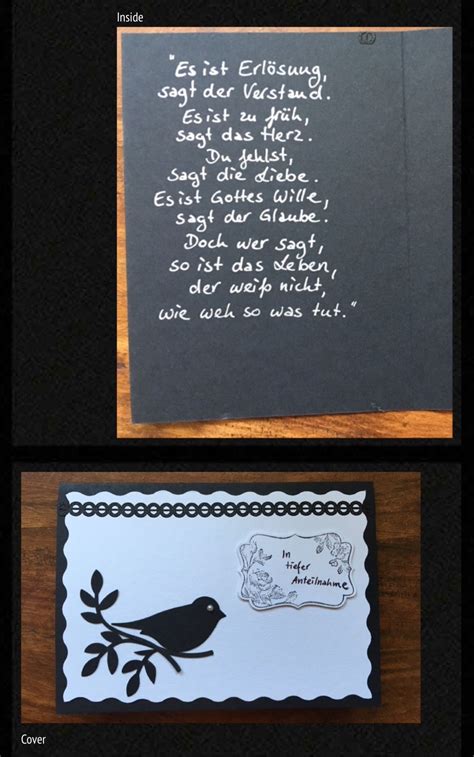 Inside
"Es ist Erlösung,
sagt der Verstand.
Es ist zu früh,
sagt das Herz.
Du fehlst,
sagt die Liebe.
Es ist Gottes Wille,
sagt der Glaube.
Doch wer sagt,
so ist das Leben,
der weiß nicht,
wie weh so was tut."
In
tiefer
Anteilnahme
Cover